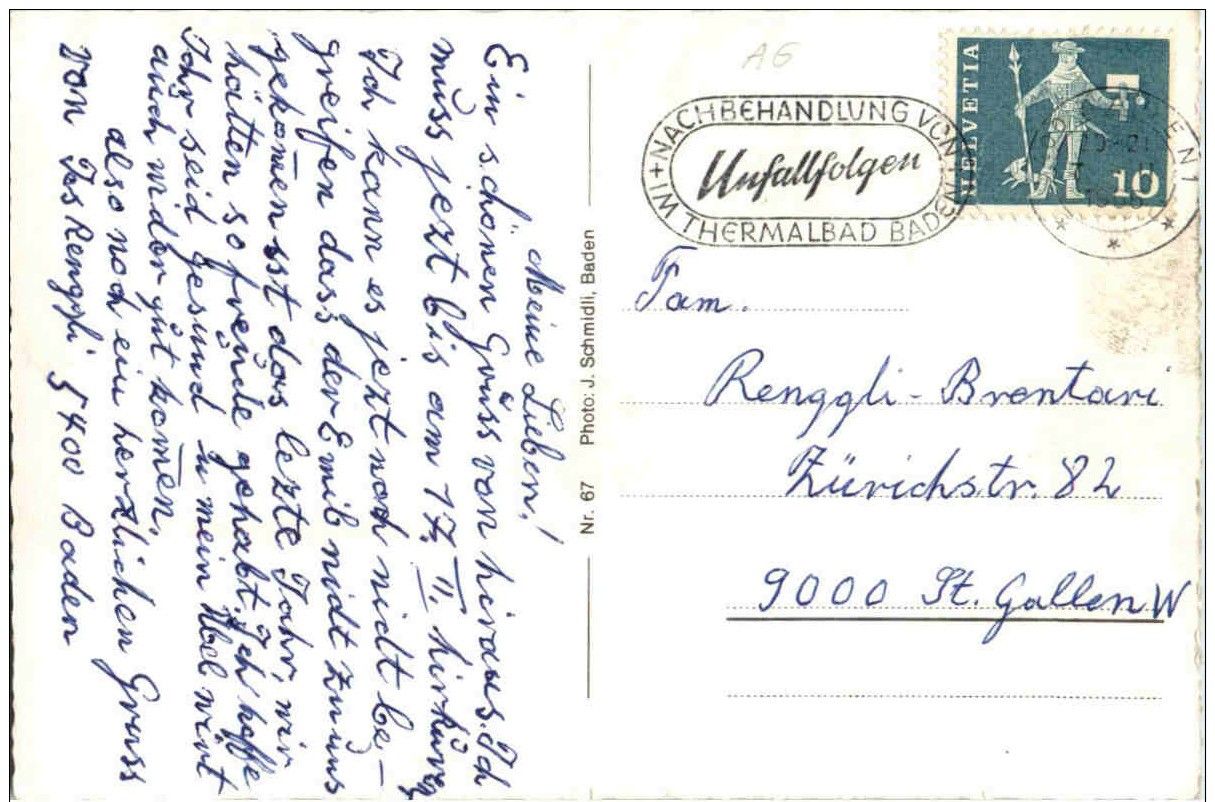 Meine Lieben!
Ein schönen Grüss von hiraus. Ich
müss jezt bis am 17. II. hir
Ich kann es jezt noch nicht be-
greifen dass der Emil nicht zu uns
gekomen ist das lezte Jahr, wir
hätten so freude gehabt, Ich hoffe
Ihr seid gesund u mein Übel wirt
auch wider gut komen,
also noch ein herzlichen Gruss
von Renggli 5400 Baden
Nr. 67 Photo: J. Schmidli, Baden
A6
+ NACHBEHANDLUNG VON
Unfallfolgen
IM THERMALBAD BADEN
HELVETIA
10
Fam.
Renggli - Brentari
Zürichstr. 82
9000 St. Gallen W